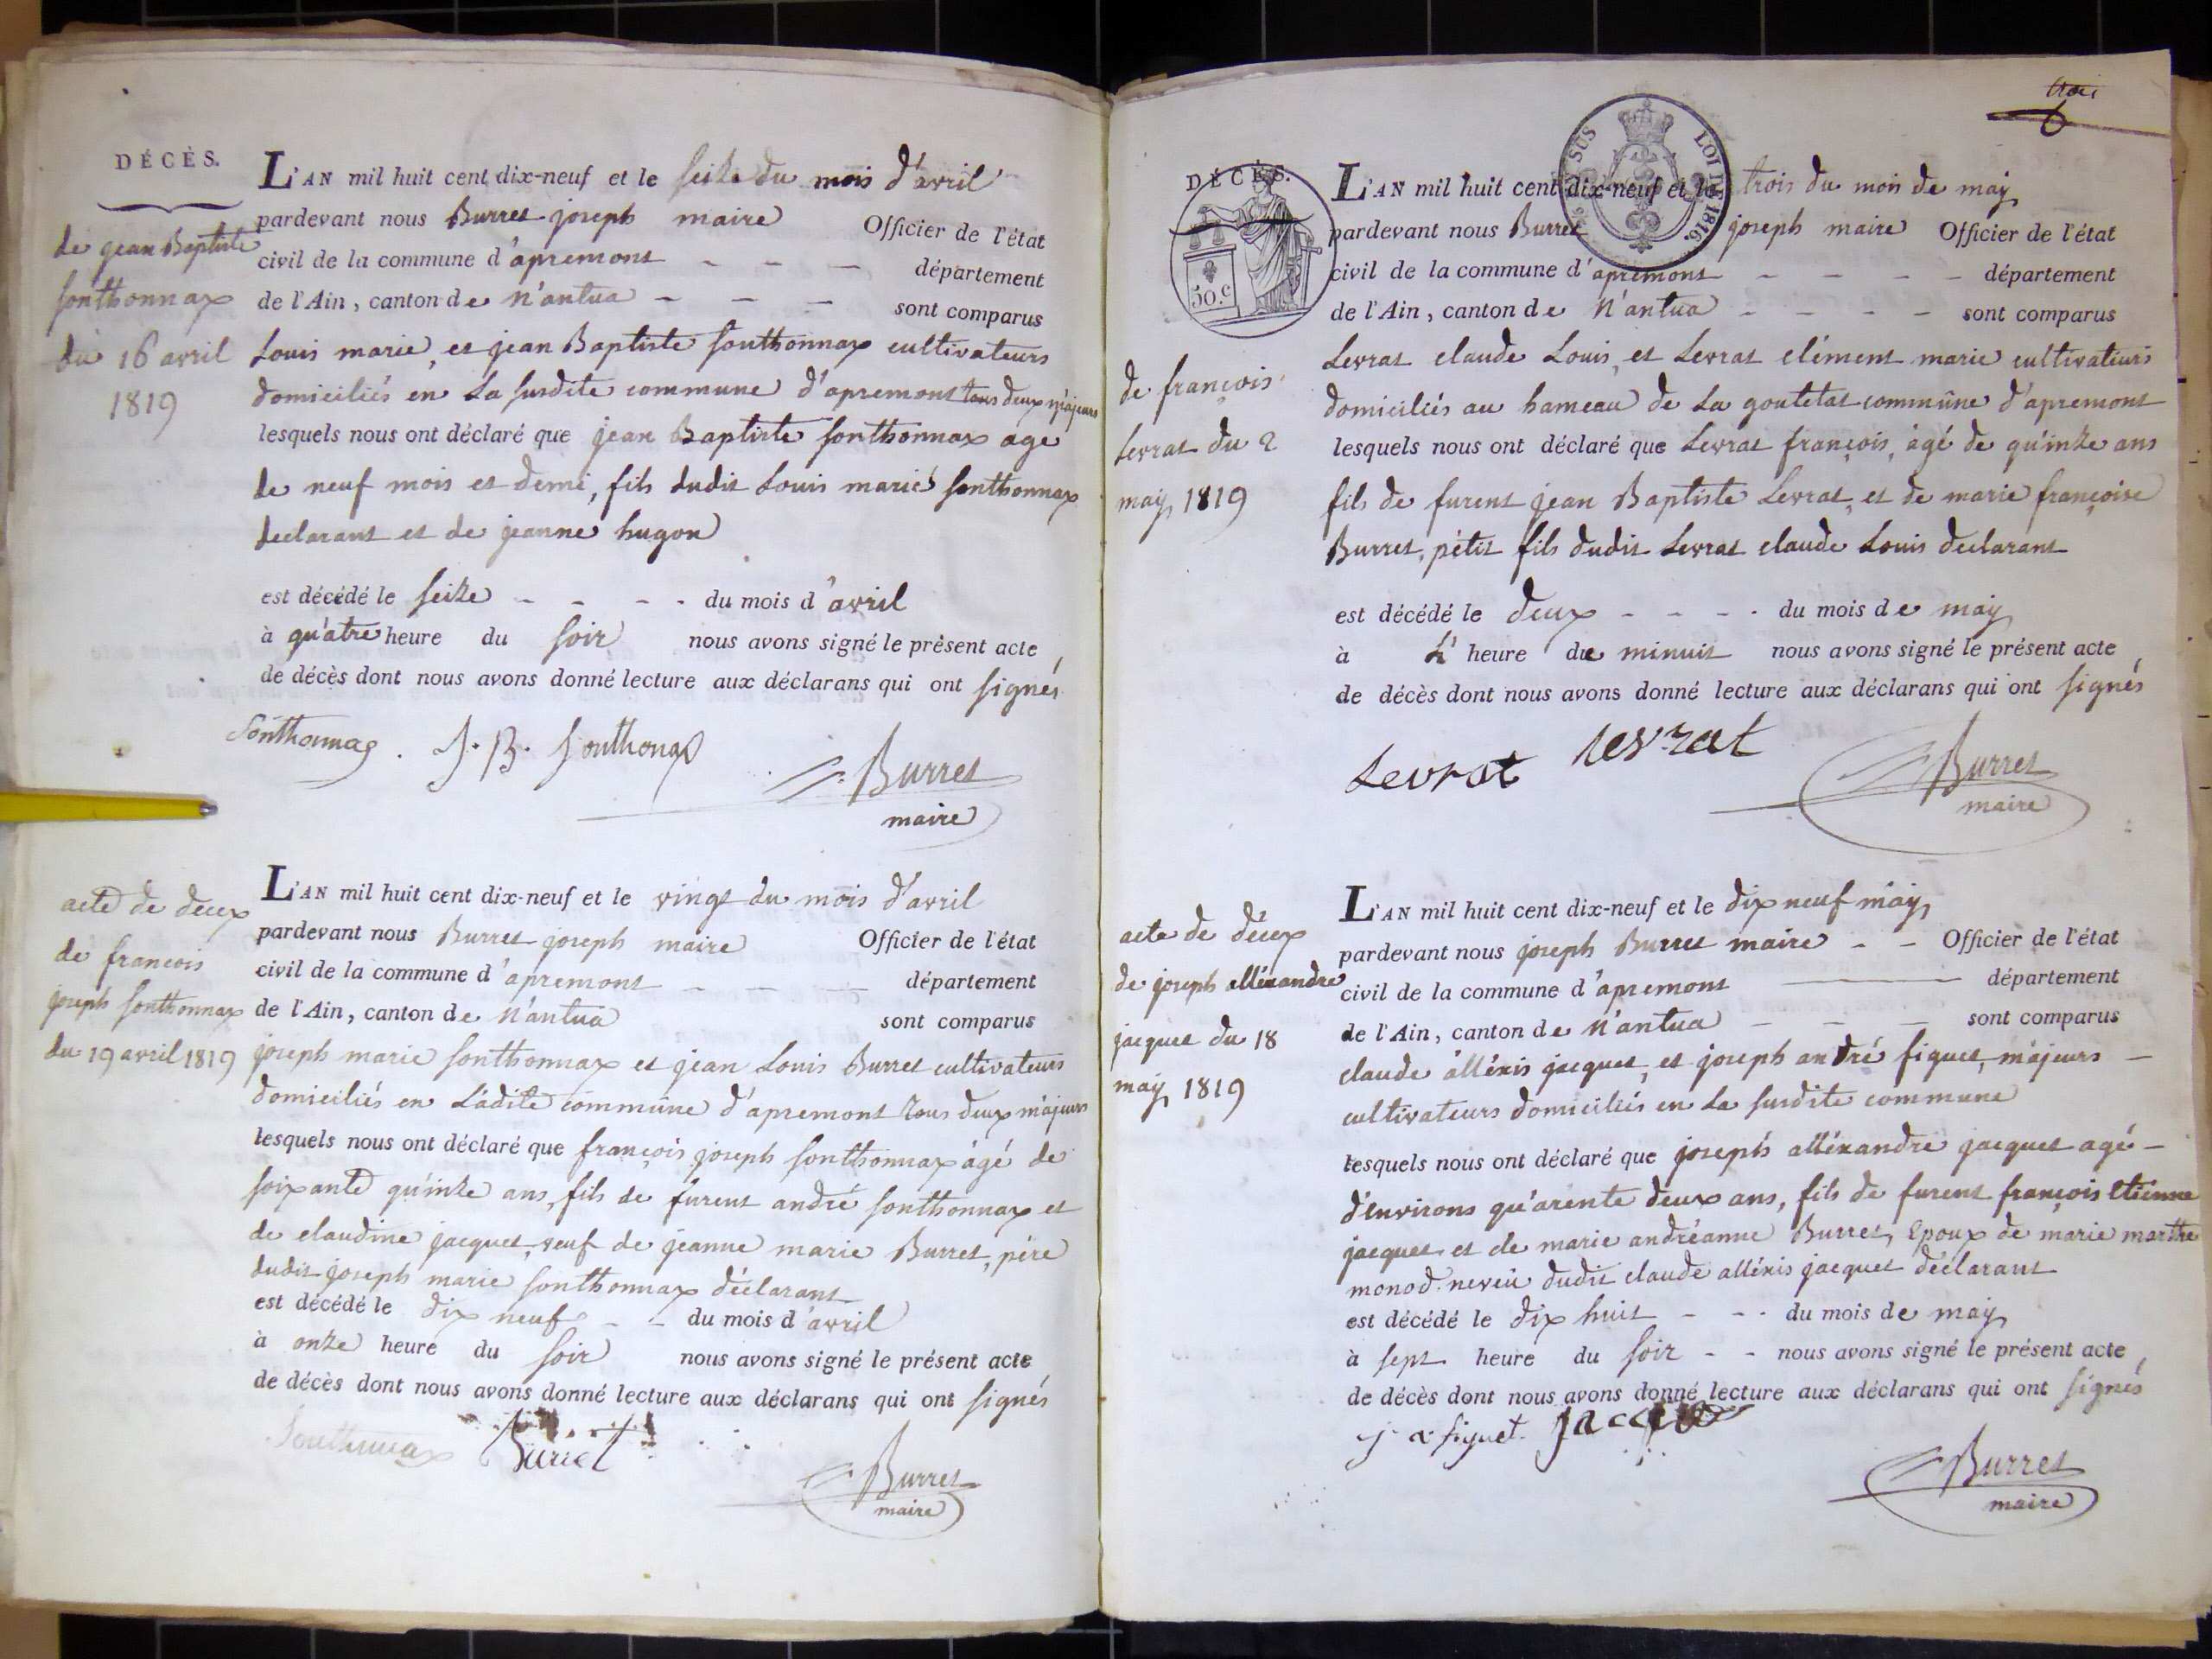 DÉCÈS.
de jean Baptiste
sonthonnax
du 16 avril
1819
L'AN mil huit cent dix-neuf et le seize du mois d'avril
pardevant nous Burret joseph maire Officier de l'état
civil de la commune d'apremont - - - département
de l'Ain, canton de N'antua - - - sont comparus
Louis marie, et jean Baptiste sonthonnax cultivateurs
domiciliés en La susdite commune d'apremont tous deux majeurs
lesquels nous ont déclaré que jean Baptiste sonthonnax age
de neuf mois et demi, fils dudit Louis marie sonthonnax
declarant et de jeanne hugon
est décédé le seize - - - - du mois d'avril
à qu'atre heure du soir nous avons signé le présent acte
de décès dont nous avons donné lecture aux déclarans qui ont signés
Sonthonnax. J. B. Sonthonax
Burret
maire
acte de decex
de francois
joseph sonthonnax
du 19 avril 1819
L'AN mil huit cent dix-neuf et le vingt du mois d'avril
pardevant nous Burret joseph maire Officier de l'état
civil de la commune d'apremont - - - département
de l'Ain, canton de N'antua sont comparus
joseph marie sonthonnax et jean Louis Burret cultivateurs
domiciliés en L'adite commune d'apremont tous deux majeurs
lesquels nous ont déclaré que françois joseph sonthonnax àgé de
soixante qu'inze ans, fils de furent andré sonthonnax et
de claudine jacquet, veuf de jeanne marie Burret, père
dudit joseph marie sonthonnax déclarant
est décédé le dix neuf - - du mois d'avril
à onze heure du soir nous avons signé le présent acte
de décès dont nous avons donné lecture aux déclarans qui ont signés
Sonthonnax Burret
Burret
maire
trois
6
SUS LOI DE 1816.
DÉCÈS.
50.c
de françois
Levrat du 2
may 1819
L'AN mil huit cent dix-neuf et le trois du mois de may
pardevant nous Burret joseph maire Officier de l'état
civil de la commune d'apremont - - - - département
de l'Ain, canton de N'antua - - - - sont comparus
Levrat claude Louis, et Levrat clément marie cultivateurs
domiciliés au hameau de La goutetat commune d'apremont
lesquels nous ont déclaré que Levrat françois, àgé de qu'inze ans
fils de furent jean Baptiste Levrat, et de marie françoise
Burret, pétit fils dudit Levrat claude Louis declarant
est décédé le deux - - - - du mois de may
à L' heure de minuit nous avons signé le présent acte
de décès dont nous avons donné lecture aux déclarans qui ont signés
Levrat Levrat
Burret
maire
acte de décex
de joseph alléxandre
jacquet du 18
may 1819
L'AN mil huit cent dix-neuf et le dix neuf may
pardevant nous joseph Burret maire - - Officier de l'état
civil de la commune d'apremont département
de l'Ain, canton de N'antua - - - sont comparus
claude alléxis jacquet, et joseph andré figuet, majeurs -
cultivateurs domiciliés en La susdite commune
lesquels nous ont déclaré que joseph alléxandre jacquet agé -
d'environs qu'arente deux ans, fils de furent françois Etienne
jacquet et de marie andréanne Burret, Epoux de marie marthe
monod. neveu dudit claude alléxis jacquet déclarant
est décédé le dix huit - - - du mois de may
à sept heure du soir - - nous avons signé le présent acte
de décès dont nous avons donné lecture aux déclarans qui ont signés
j. a. figuet. jacquet
Burret
maire